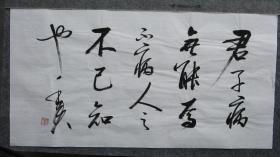 君子病
無能焉
不病人之
不己知
也